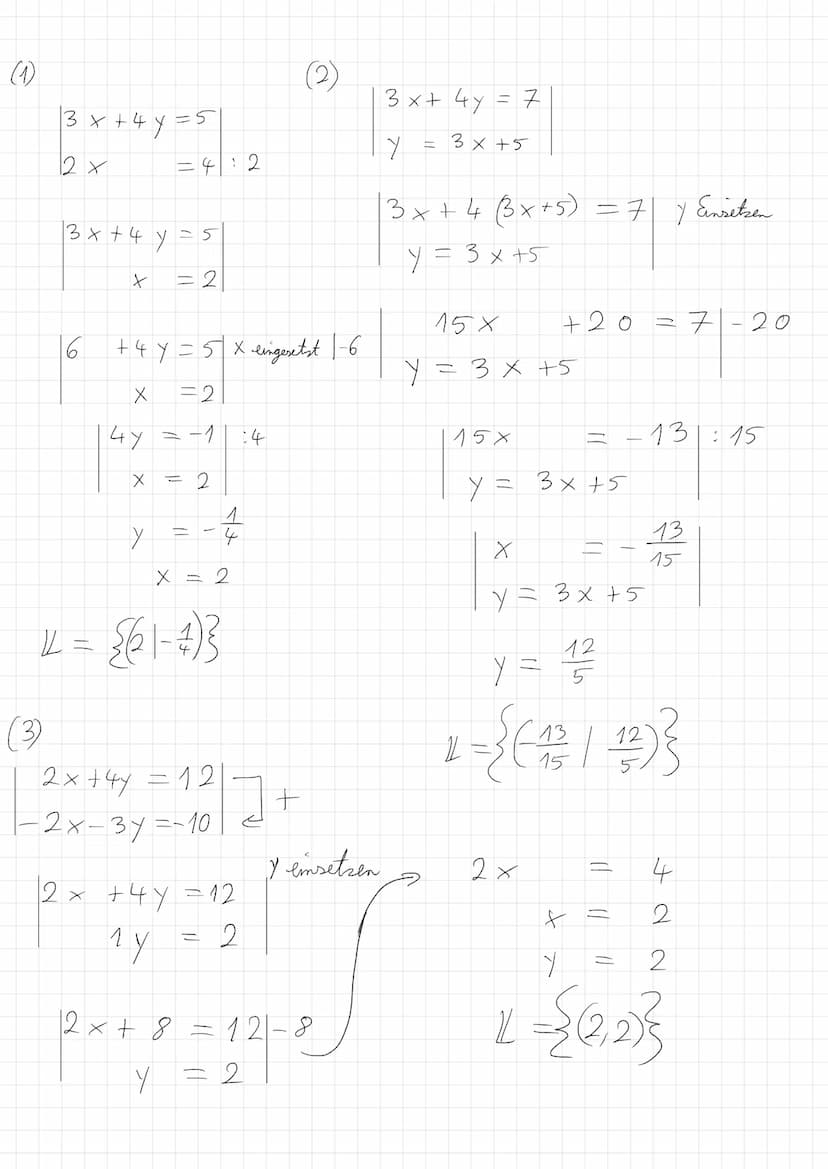 (1)
|3x+4y=5|
|2x =4| :2
|3x+4y=5|
| x =2|
|6 +4y=5| x eingesetzt |-6
| x =2|
|4y =-1| :4
| x = 2|
y = -1/4
x = 2
𝕃 = {(2|-1/4)}
(2)
|3x+4y=7|
|y = 3x+5|
|3x+4(3x+5) =7| y Einsetzen
|y = 3x+5|
|15x +20 =7|-20
|y = 3x+5|
|15x = -13| :15
|y = 3x+5|
|x = -13/15|
|y = 3x+5|
y = 12/5
𝕃={(-13/15 | 12/5)}
(3)
|2x+4y=12|
|-2x-3y=-10| +
|2x+4y=12| y einsetzen
|1y = 2|
|2x+8=12|-8
|y = 2|
2x = 4
x = 2
y = 2
𝕃={(2,2)}